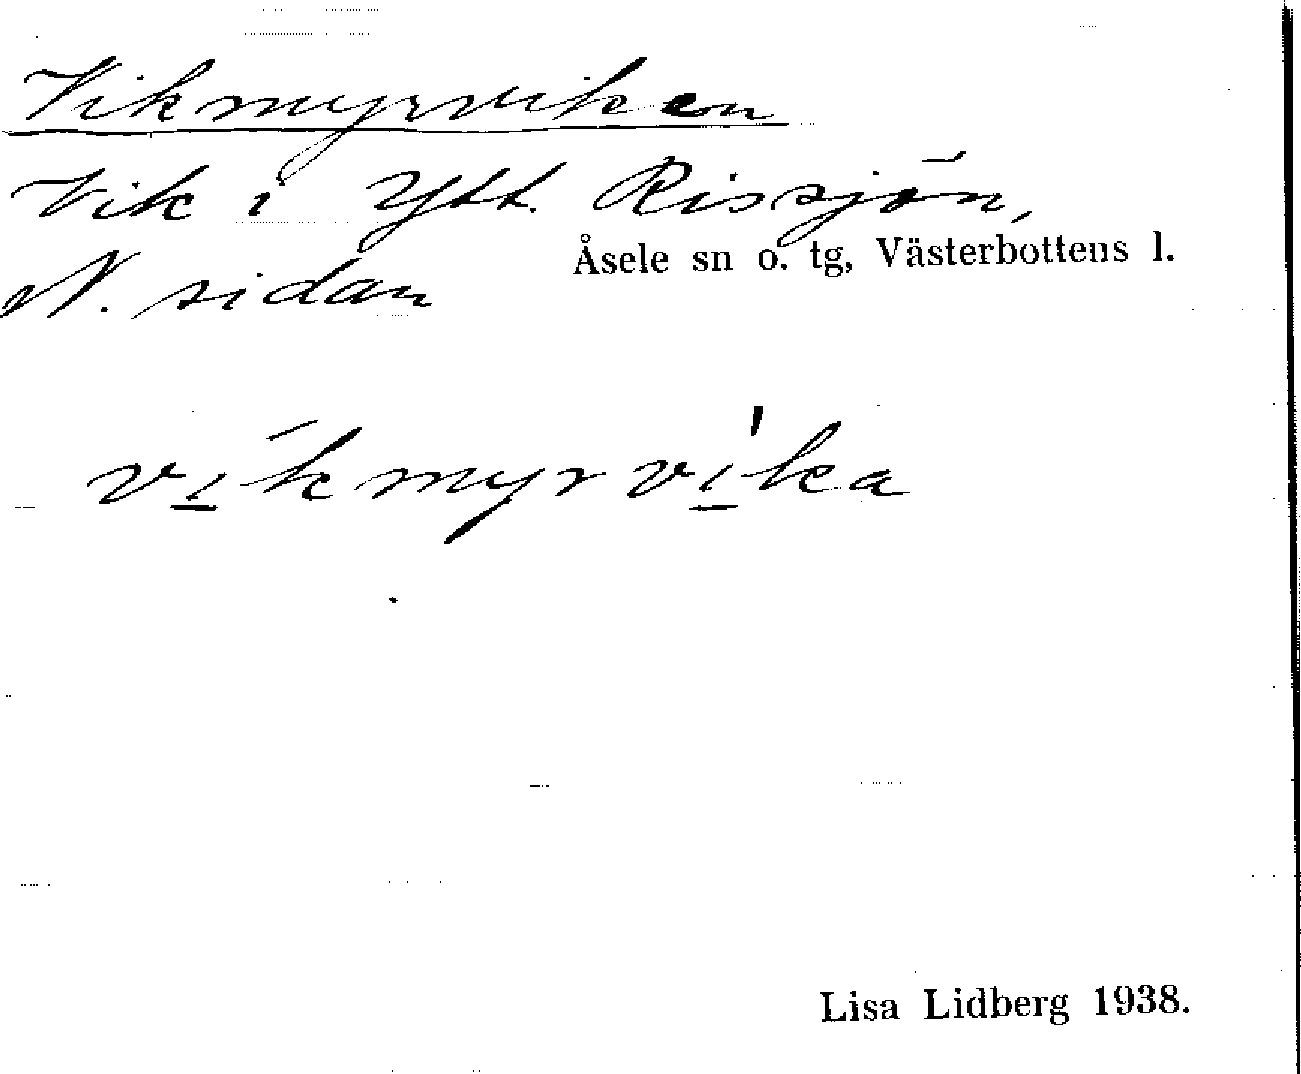 Vikmyrviken
Vik i Ytt. Rissjön,
Åsele sn o. tg, Västerbottens l.
N. sidan
vi̱´kmyrvi̱'ka
Lisa Lidberg 1938.